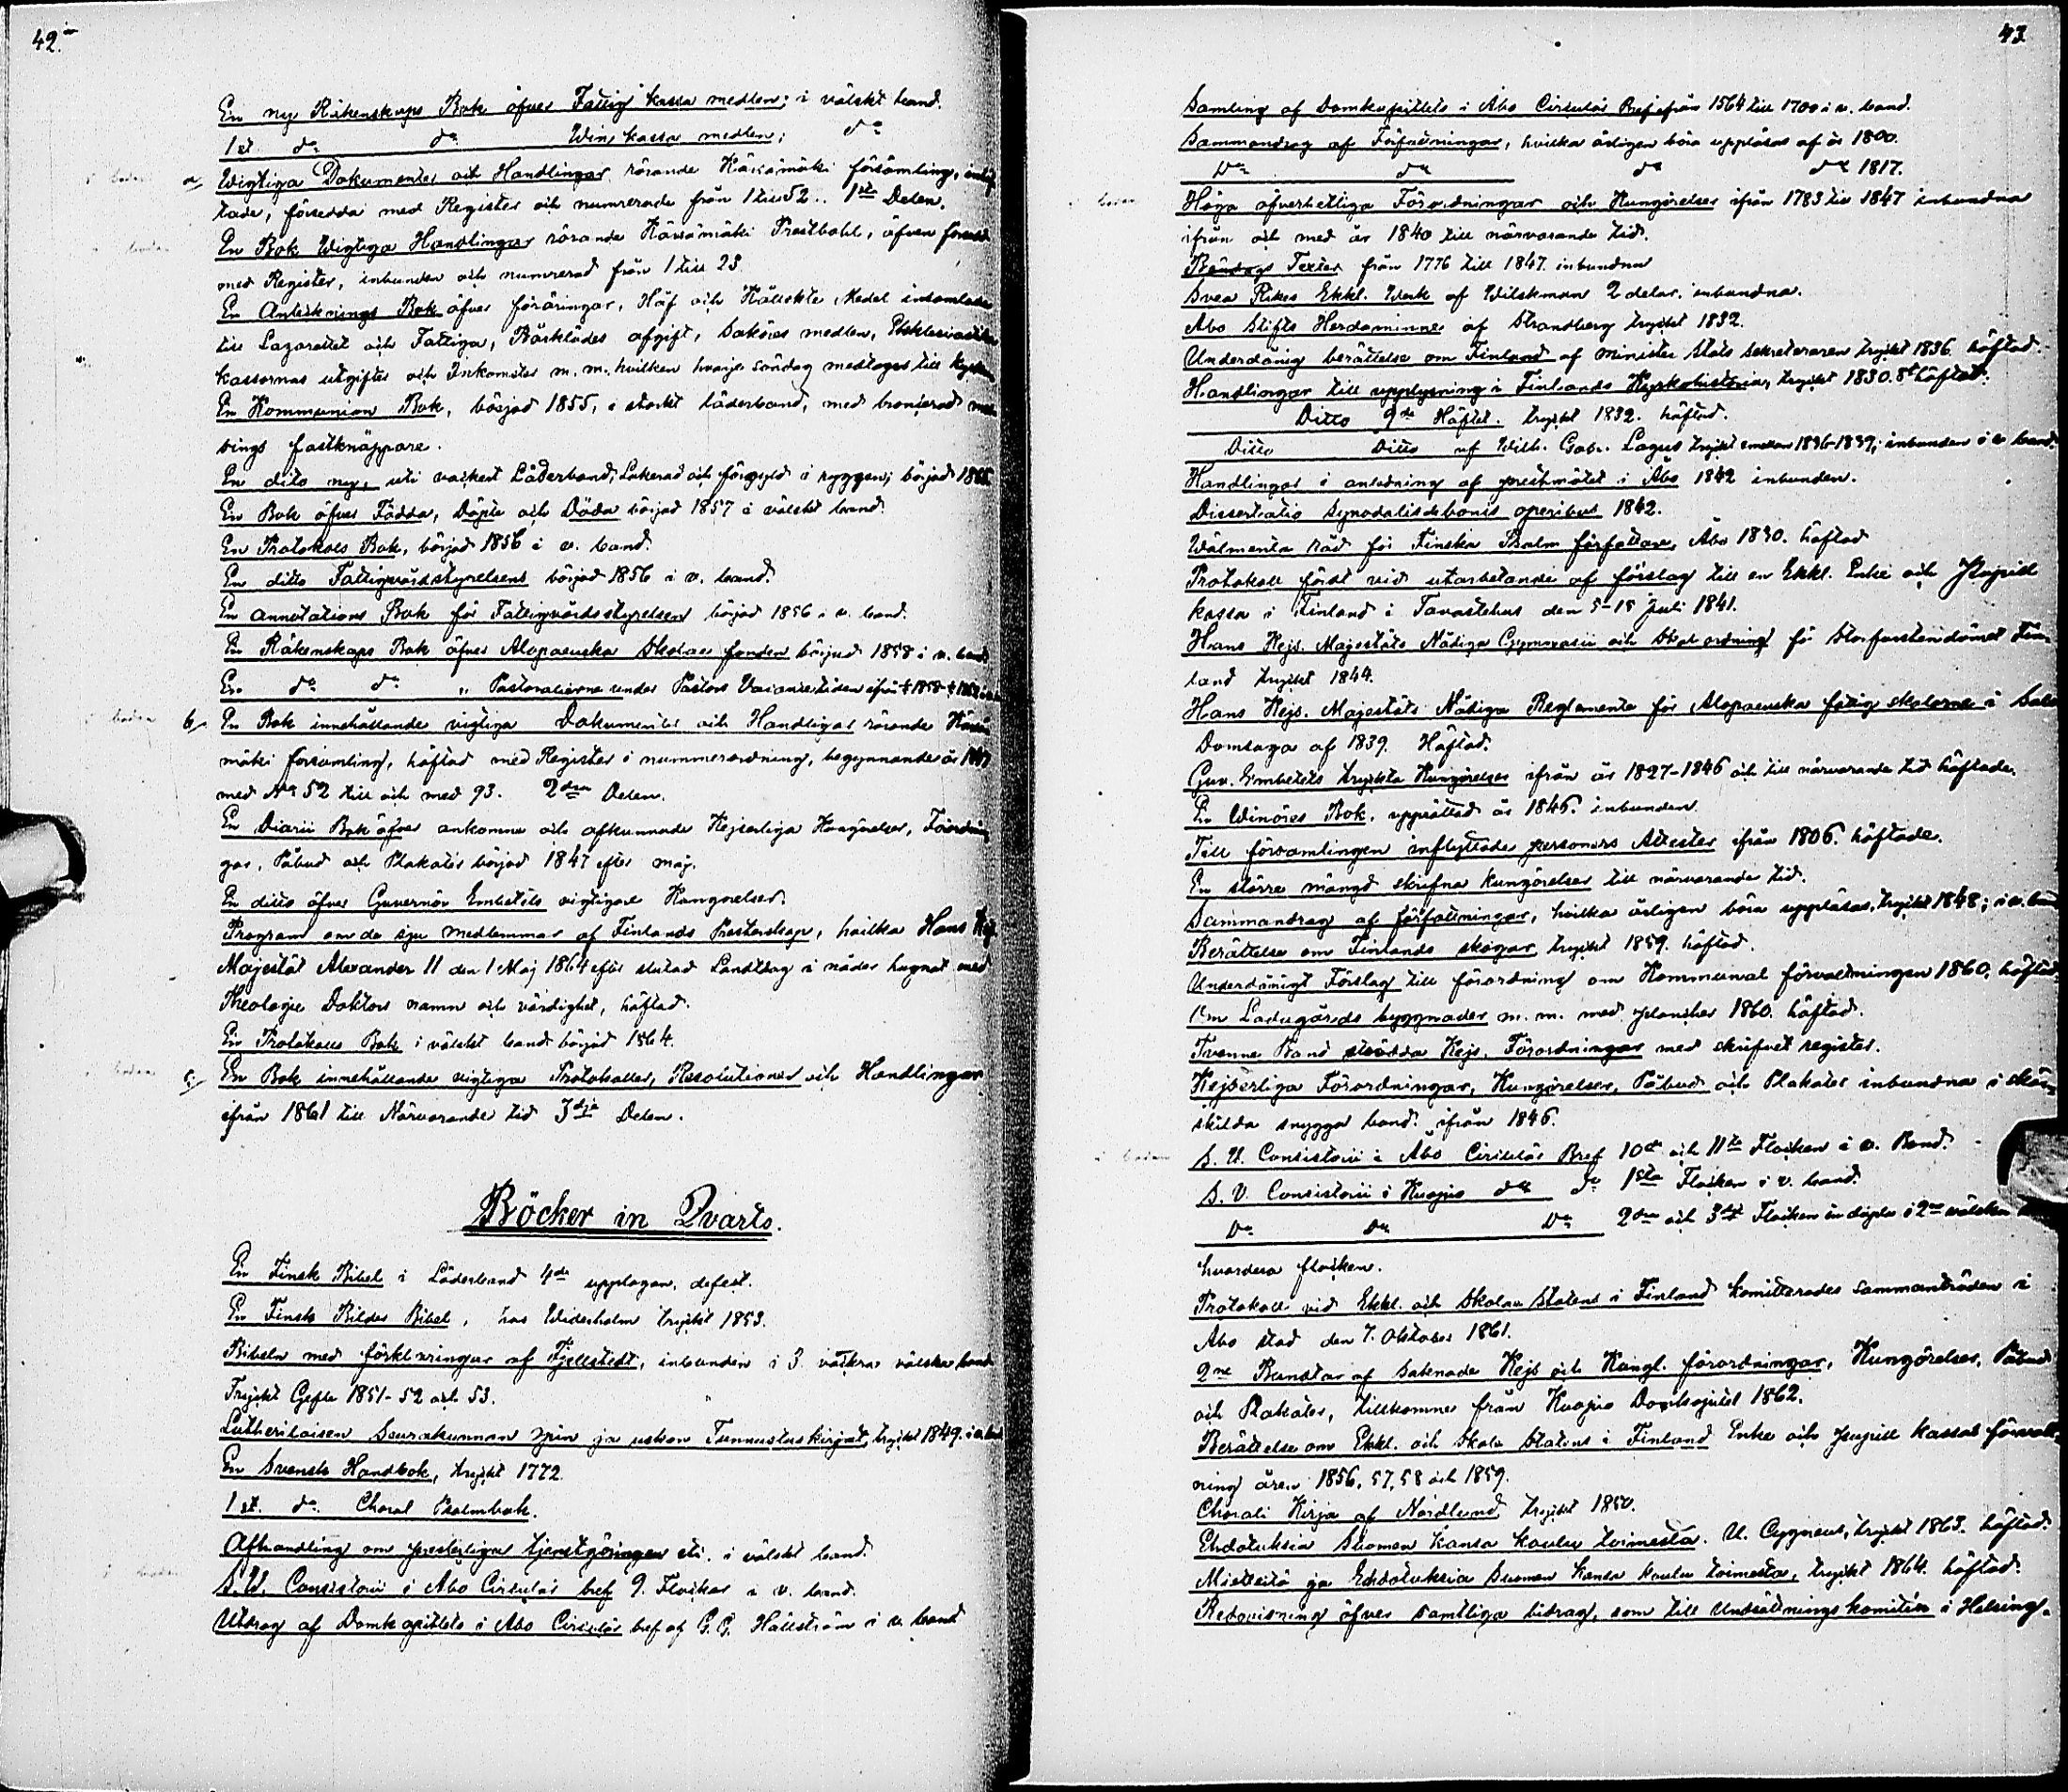 42.
En ny Räkenskaps Bok öfver Fattig kassa medlen; i välskt band.
1 st. do do Win kassa medlen; do
a, Wigtiga Dokumenter och Handlingar rörande Kärsämäki församling, inhäf
tade, försedda med Register och numrerade från 1 till 52. 1sta Delen.
En Bok Wigtiga Handlingar rörande Kärsämäki Prestbohl, äfven försedd
med Register, inbunden och numrerad från 1 till 23.
En Antecknings Bok öfver föräringar, Håf och Kollekte Medel insamlade
till Lazarettet och Fattiga, Bårklädes afgift, Saköres medlen, Ecklesiastik
kassornas utgifter och Inkomster m. m. hvilken hvarje söndag medtages till kyrkan
En Kommunion Bok, börjad 1855, i starkt läderband, med bronserad mes
sings fastknäppare.
En dito ny, uti vackert Läderband, Lakerad och förgyld i ryggen; börjad 1865.
En Bok öfver Födda, Döpta och Döda börjad 1857 i välskt band.
En Protokolls Bok, börjad 1856 i v. band.
En ditto Fattigvårdstyrelsens börjad 1856 i v. band.
En annotations Bok för Fattigvårdsstyrelsen börjad 1856 i v. band.
En Räkenskaps Bok öfver Alopaeuska Skolas fonden börjad 1858 i v. band
En do do " Pastoralierne under Pastors Vacancetiden ifrån
b, En Bok innehållande vigtiga Dokumenter och Handlingar rörande Kärsä
mäki församling, häftad med Register i nummerordning, begynnande år 1847
med No 52 till och med 93. 2dra Delen.
En Diarii Bok öfver ankomne och afkunnade Kejserliga Kungörelser, Förordnin
gar, Påbud och Plakater börjad 1847 efter maj.
En ditto öfver Guvernör Embetets vigtigare Kungörelser.
Program om de sju medlemmar af Finlands Presterskap, hvilka Hans Kej.
Majestät Alexander II den 1 Maj 1864 efter slutad Landtdag i nåder hugnat med
Theologie Doktors namn och värdighet, häftad.
En Protokolls Bok i välskt band börjad 1864.
c, En Bok innehållande vigtiga Protokoller, Resolutioner och Handlingar
ifrån 1861 till Närvarande tid 3dje Delen.
Böcker in Qvarto.
En Finsk Bibel i Läderband 4de upplagan, defect.
En Finsk Bilder Bibel, hos Widerholm tryckt 1853.
Bibeln med förklaringar af Fjellstedt, inbunden i 3 vackra välska band
Tryckt Gefle 1851-52 och 53.
Lutherilaisen Seurakunnan opin ja uskon Tunnustuskirjat, tryckt 1849. i v. band
En Svensk Handbok, tryckt 1772.
1 st. do Choral Psalmbok.
Afhandling om presterliga tjenstgöringen etc. i välskt band.
S. V. Consistorii i Åbo Circulär bref 9. Flockar i v. band.
Utdrag af Domkapitlets i Åbo Circulär bref af G. G. Hällström i v. band
43
Samling af Domkapitlets i Åbo Circulär Bref ifrån 1564 till 1700 i v. band.
Sammandrag af Författningar, hvilka årligen böra uppläsas af år 1800.
Do do do do 1817.
Höga öfverhetliga Förordningar och Kungörelser ifrån 1783 till 1847 inbundna
ifrån och med år 1840 till närvarande tid.
Böndags Texter från 1776 till 1847. inbundna
Svea Rikes Ekkl. Werk af Wilskman 2 delar. inbundna.
Åbo Stifts Herdaminne af Strandberg tryckt 1832.
Underdånig berättelse om Finland af minister Stats Sekreteraren tryckt 1836. häftad.
Handlingar till upplysning i Finlands Kyrkohistoria, tryckt 1830. 8de häftet.
Ditto 9de Häftet. tryckt 1832. häftad.
Ditto Ditto af Wilh. Gabr. Lagus tryckt emellan 1836-1839; inbunden i v. band.
Handlingar i anledning af prestmötet i Åbo 1842 inbunden.
Dissertatio Synodalis de bonis operibus 1842.
Wälmenta råd för Finska Psalm författare, Åbo 1830. häftad
Protokoll fördt vid utarbetande af förslag till en Ekkl. Enke och Pupill
kassa i Finland i Tavastehus den 5-15 Juli 1841.
Hans Kejs. Majestäts Nådiga Gymnasii och Skol ordning för Storfurstendömet Fin
land tryckt 1844.
Hans Kejs. Majestäts Nådiga Reglemente för Alopaeuska fattig skolorne i Salo
Domsaga af 1839. Häftad.
Guv. Embetets tryckta Kungörelser ifrån år 1827-1846 och till närvarande tid häftade.
En Winöres Bok, upprättad år 1846. inbunden.
Till församlingen inflyttade personers Attester ifrån 1806. häftade.
En större mängd skrifna kungörelser till närvarande tid.
Sammandrag af författningar, hvilka årligen böra uppläsas, tryckt 1848; i v. band
Berättelse om Finlands skogar, tryckt 1859. häftad.
Underdånigt Förslag till förordning om Kommunal förvaltningen 1860, häftad.
Om Ladugårds byggnader m. m. med plancher 1860. häftad.
Tvenne Band Kejs. Förordningar med skrifvet register.
Kejserliga Förordningar, Kungörelser, Påbud och Plakater inbundna i
skilda snygga band. ifrån 1846.
S. V. Consistorii i Åbo Circulär Bref 10de och 11te Flocken i v. Band.
S. V. Consistorii i Kuopio do do 1sta Flocken i v. band.
Do Do Do 2dra och 3dje Flocken in duplo i 2ne välska
hvardera flocken.
Protokoll vid Ekkl. och Skolu Statens i Finland komitterades sammanträden i
Åbo stad den 7. Oktober 1861.
2ne Buntar af Saknade Kejs och Kongl. förordningar, Kungörelser, Påbud
och Plakater, tillkomne från Kuopio Domkapitel 1862.
Berättelse om Ekkl. och Skole Statens i Finland Enke och Pupill Kassas förvalt-
ning åren 1856, 57, 58 och 1859.
Chorali Kirja af Nordlund tryckt 1850.
Ehdotuksia Suomen kansa koulu toimesta. U. Cygneus, tryckt 1863. häftad.
Mietteitä ja Ehdotuksia Suomen kansa koulu toimesta, tryckt 1864. häftad.
Redovisning öfver samtliga bidrag, som till Undsättnings komitén i Helsing-